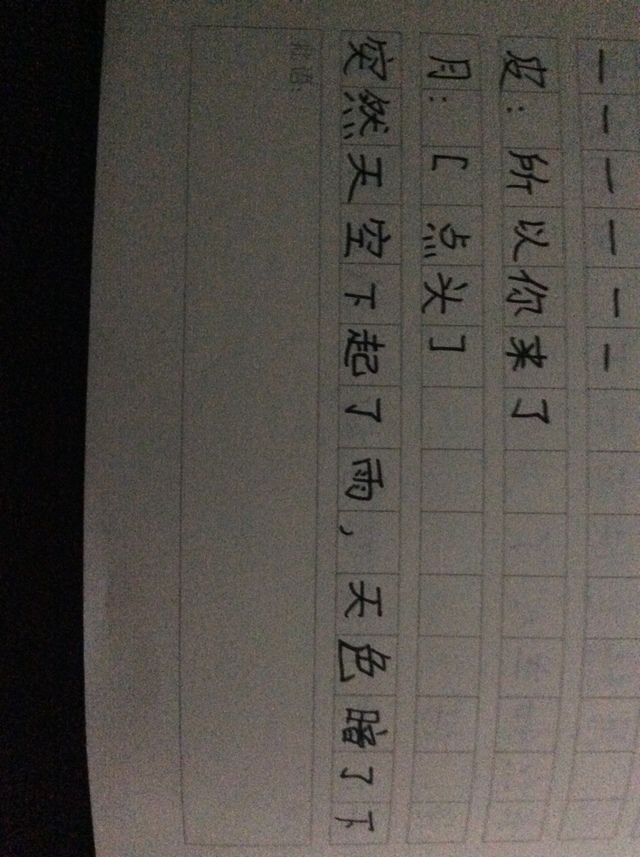 一一一一一一
皮：所以你来了
月：[点头]
突然天空下起了雨，天色暗了下
批语：